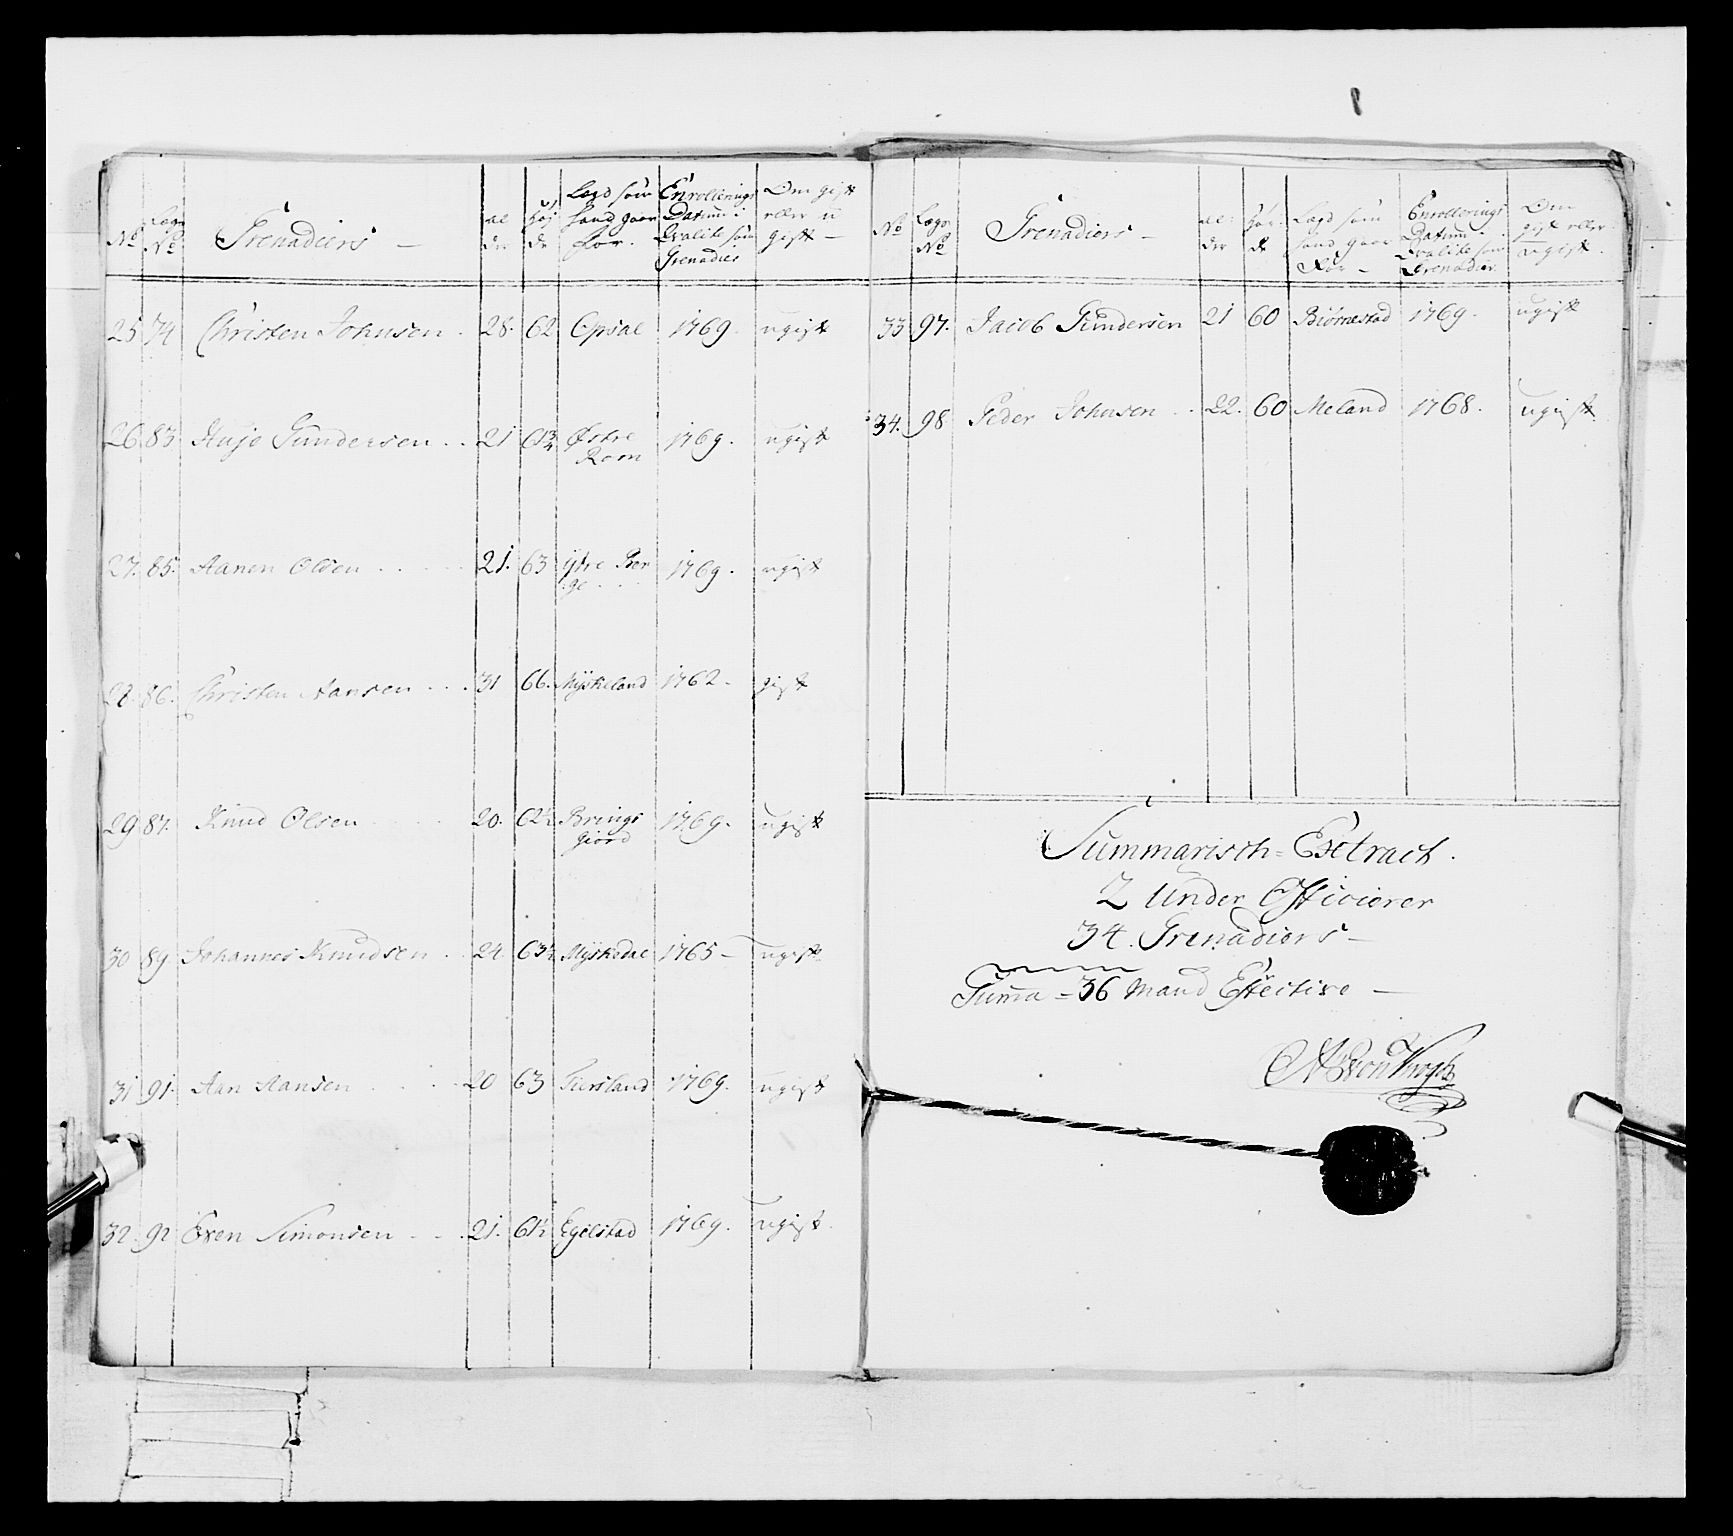 No Lægs No Grenadiers – al der höj de Lægd som hand gaar for. Enrollerings Datum i Qvalite som Grenadier Om gift eller u gift –
25 74 Christen Johnsen. 28. 62 Opsal 1769. ugift
26 83 Gundersen . . 21 61¾ Østre Rom 1769. ugift
27. 85. Aanen Olsen . . . . . 21. 63 ystre Ber ge . . . 1769. ugift
28. 86. Christen Aansen . . . 31 66. Myskeland 1762. gift
29 87. Knud Olsen . . . . 20. 62½ Brings giord 1769. ugift
30 89 Johannes Knudsen . . 24. 63½ Myskedal 1765 – ugift
31 91. Aan Aansen . . . . 20 63 Fiersland 1769. ugift
32. 92 Even Simonsen . . . 21. 61½ Egelstad 1769. ugift.
No Lægs No Grenadiers – al der höi de Lægd som hand gaar For – Enrollerings Datum i Qvalite som Grenadier Om gift eller ugift.
33 97. Jacob Gundersen 21 60 Biörnestad 1769. ugift
34. 98 Peder Johnsen . . 22. 60 Meland 1768. ugift
Summarisch = Extract.
2 Under Officierer
34. Grenadiers –
Suma = 36 Mand Efective –